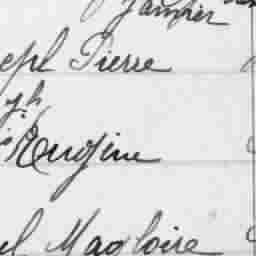 Janvier
eph Pierre
Eugène
el Magloire